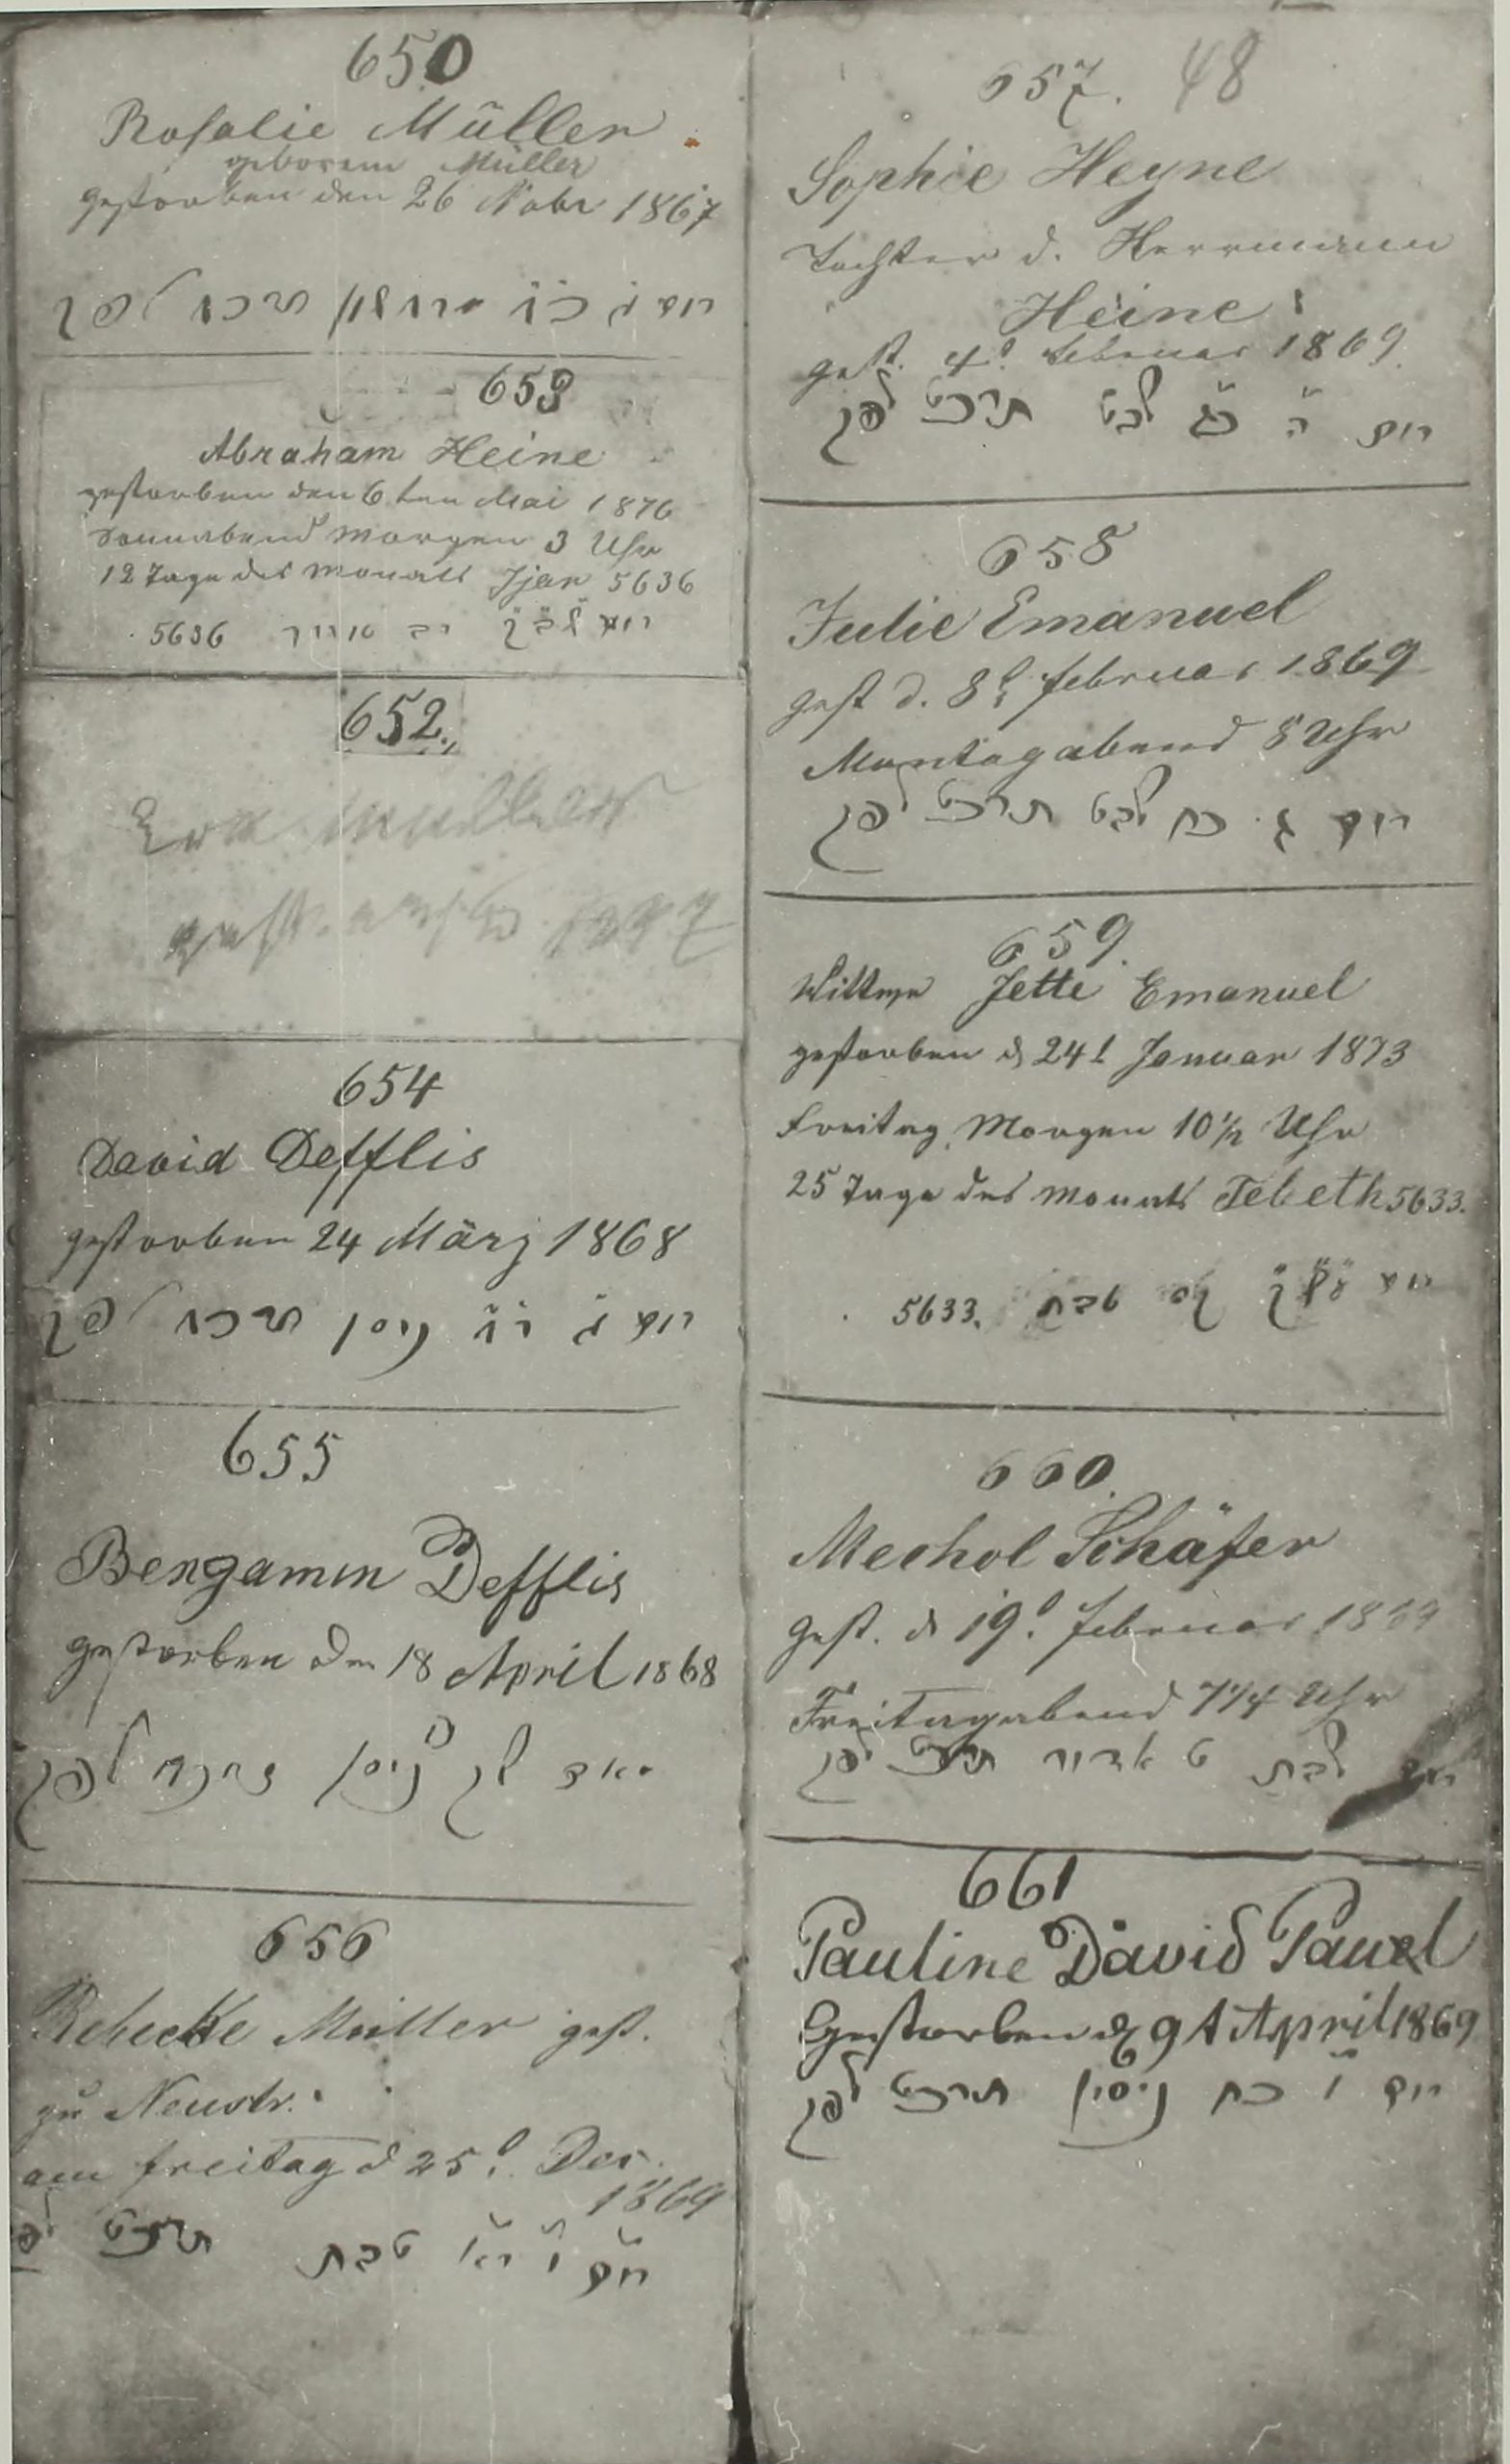 650
Rosalie Müller
geborene Müller
gestorben den 26 Nobr 1867
יום ג כ״ט מרחשון תרכח לפק
653
Abraham Heine
gestorben den 6ten Mai 1876
Sonnabend Morgen 3 Uhr
12 Tage des Monats Ijar 5636
יום שבק יב אייר 5636
652.
Müller
gest.
654
David Defflis
gestorben 24 März 1868
יום ג ניסן תרכח לפק
655
Bengamin Defflis
gestorben den 18 April 1868
ניסן תרכח לפק
656
Rebecke Müller gest.
zu Neustr.
am Freitag d 25t. Dec.
1869
יום ו טבת תרכט לפ
657. 48
Sophie Heyne
Tochter d. Herrmann
Heine
gest. 4t. Februar 1869.
יום ה כג שבט תרכט לפק
658
Julie Emanuel
gest d. 8t. Februar 1869
Montagabend 8 Uhr
יום ג כח שבט תרכט לפק
659.
Wittwe Jette Emanuel
gestorben d 24t Januar 1873
Freitag Morgen 10½ Uhr
25 Tage des Monats Tebeth 5633.
יום טבת 5633.
660.
Mechol Schäfer
gest. d 19t. Februar 1869
Freitagabend 7¼ Uhr
יום שבת ט אדר תרכט לפק
661
Pauline David Pauel
Gestorben d 9t April 1869
יום ו כח ניסן תרכט לפק